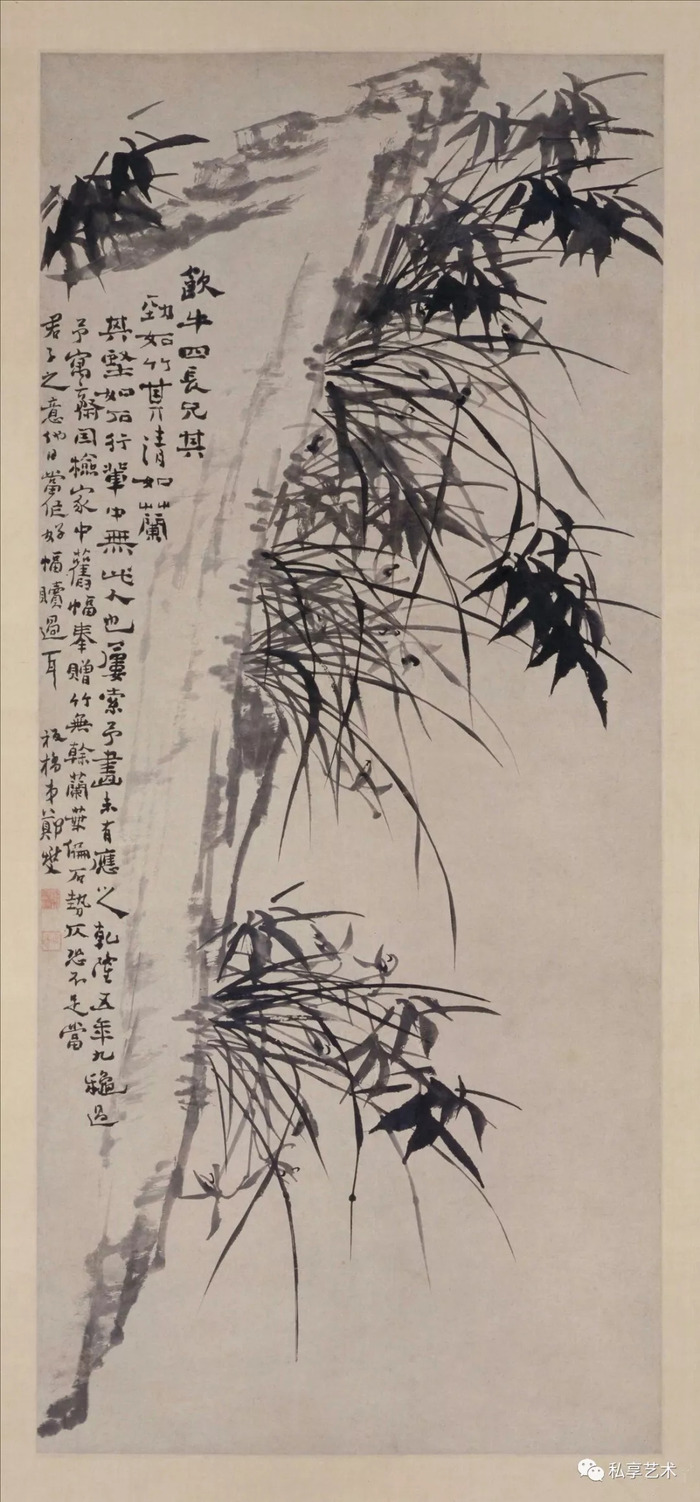 飲牛四長兄其
勁如竹其清如蘭
其堅如石行輩中無此人也屢索予畫未有應之乾隆五年九秋過
予寓齋因檢家中舊幅奉贈竹無幹蘭葉偏石勢仄恐不足當
君子之意他日當作好幅贖過耳
板橋弟鄭燮
私享艺术